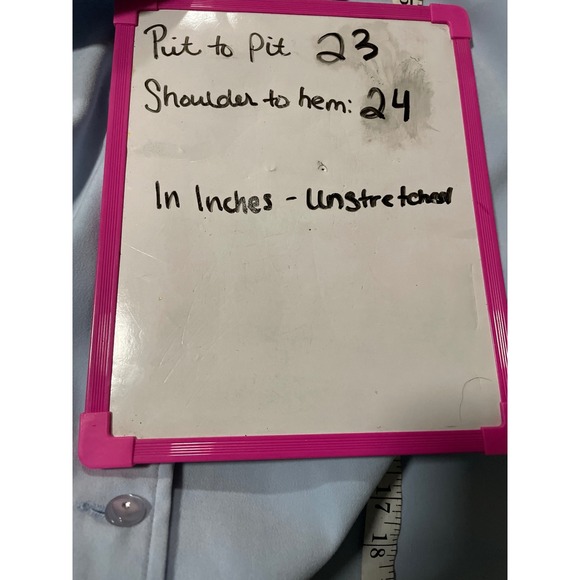 Pit to Pit 23
Shoulder to hem: 24
In Inches - Unstretched
17 18